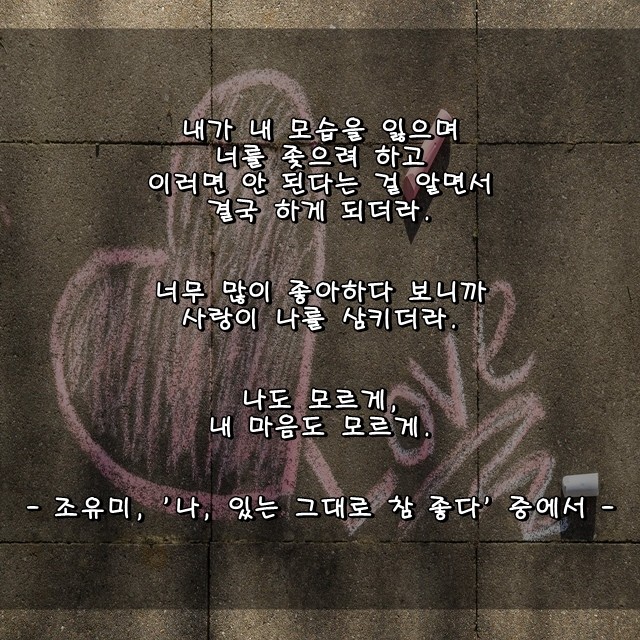 내가 내 모습을 잃으며
너를 좇으려 하고
이러면 안 된다는 걸 알면서
결국 하게 되더라.
너무 많이 좋아하다 보니까
사랑이 나를 삼키더라.
나도 모르게,
내 마음도 모르게.
- 조유미, '나, 있는 그대로 참 좋다' 중에서 -
Love